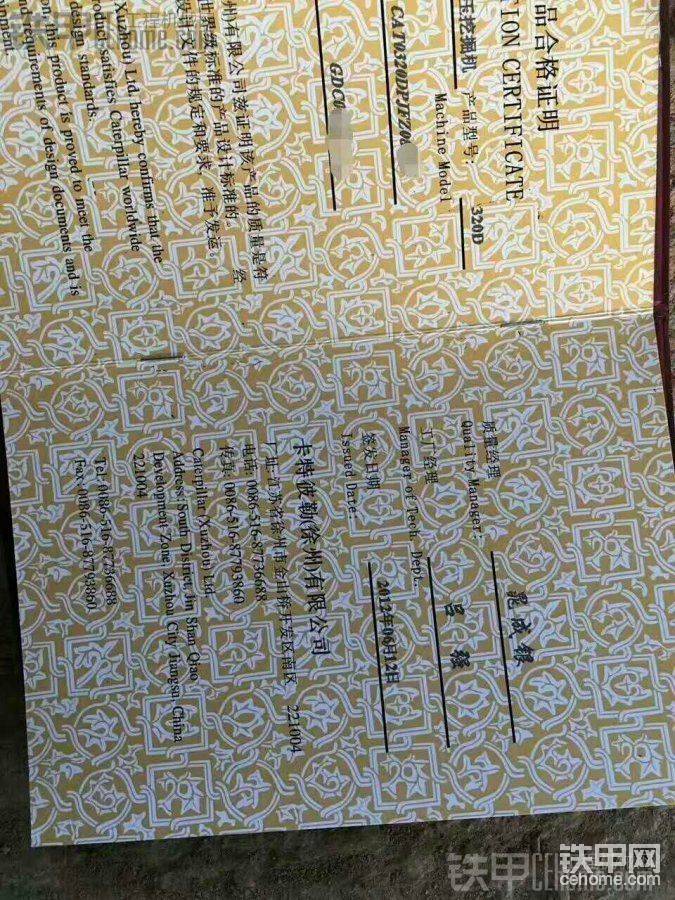 品合格证明
TION CERTIFICATE
压挖掘机 产品型号： 320D
Machine Model
CAT0320DPJFZ0
GDC0
州)有限公司兹证明该产品的质量是符
世界标准的产品设计标准的。 经
设计文件的规定和要求，准予发运。
Xuzhou) Ltd. hereby confirms that the
product satisfies Caterpillar worldwide
design standards.
on this product is proved to meet the
requirements of design documents and is
质量经理
Quality Manager:
工厂经理
Manager of Tech. Dept.
签发日期 2012年06月12日
Issued Date:
卡特彼勒(徐州)有限公司
厂址:江苏省徐州市金山桥开发区南区 221004
电话: 0086-516-87736688
传真: 0086-516-87793860
Caterpillar Xuzhou Ltd.
Address: South District, Jin Shan Qiao
Development Zone, Xuzhou City Jiangsu China
221004
Tel: 0086-516-87736688
Fax: 0086-516-87793860
铁甲网
cehome.com